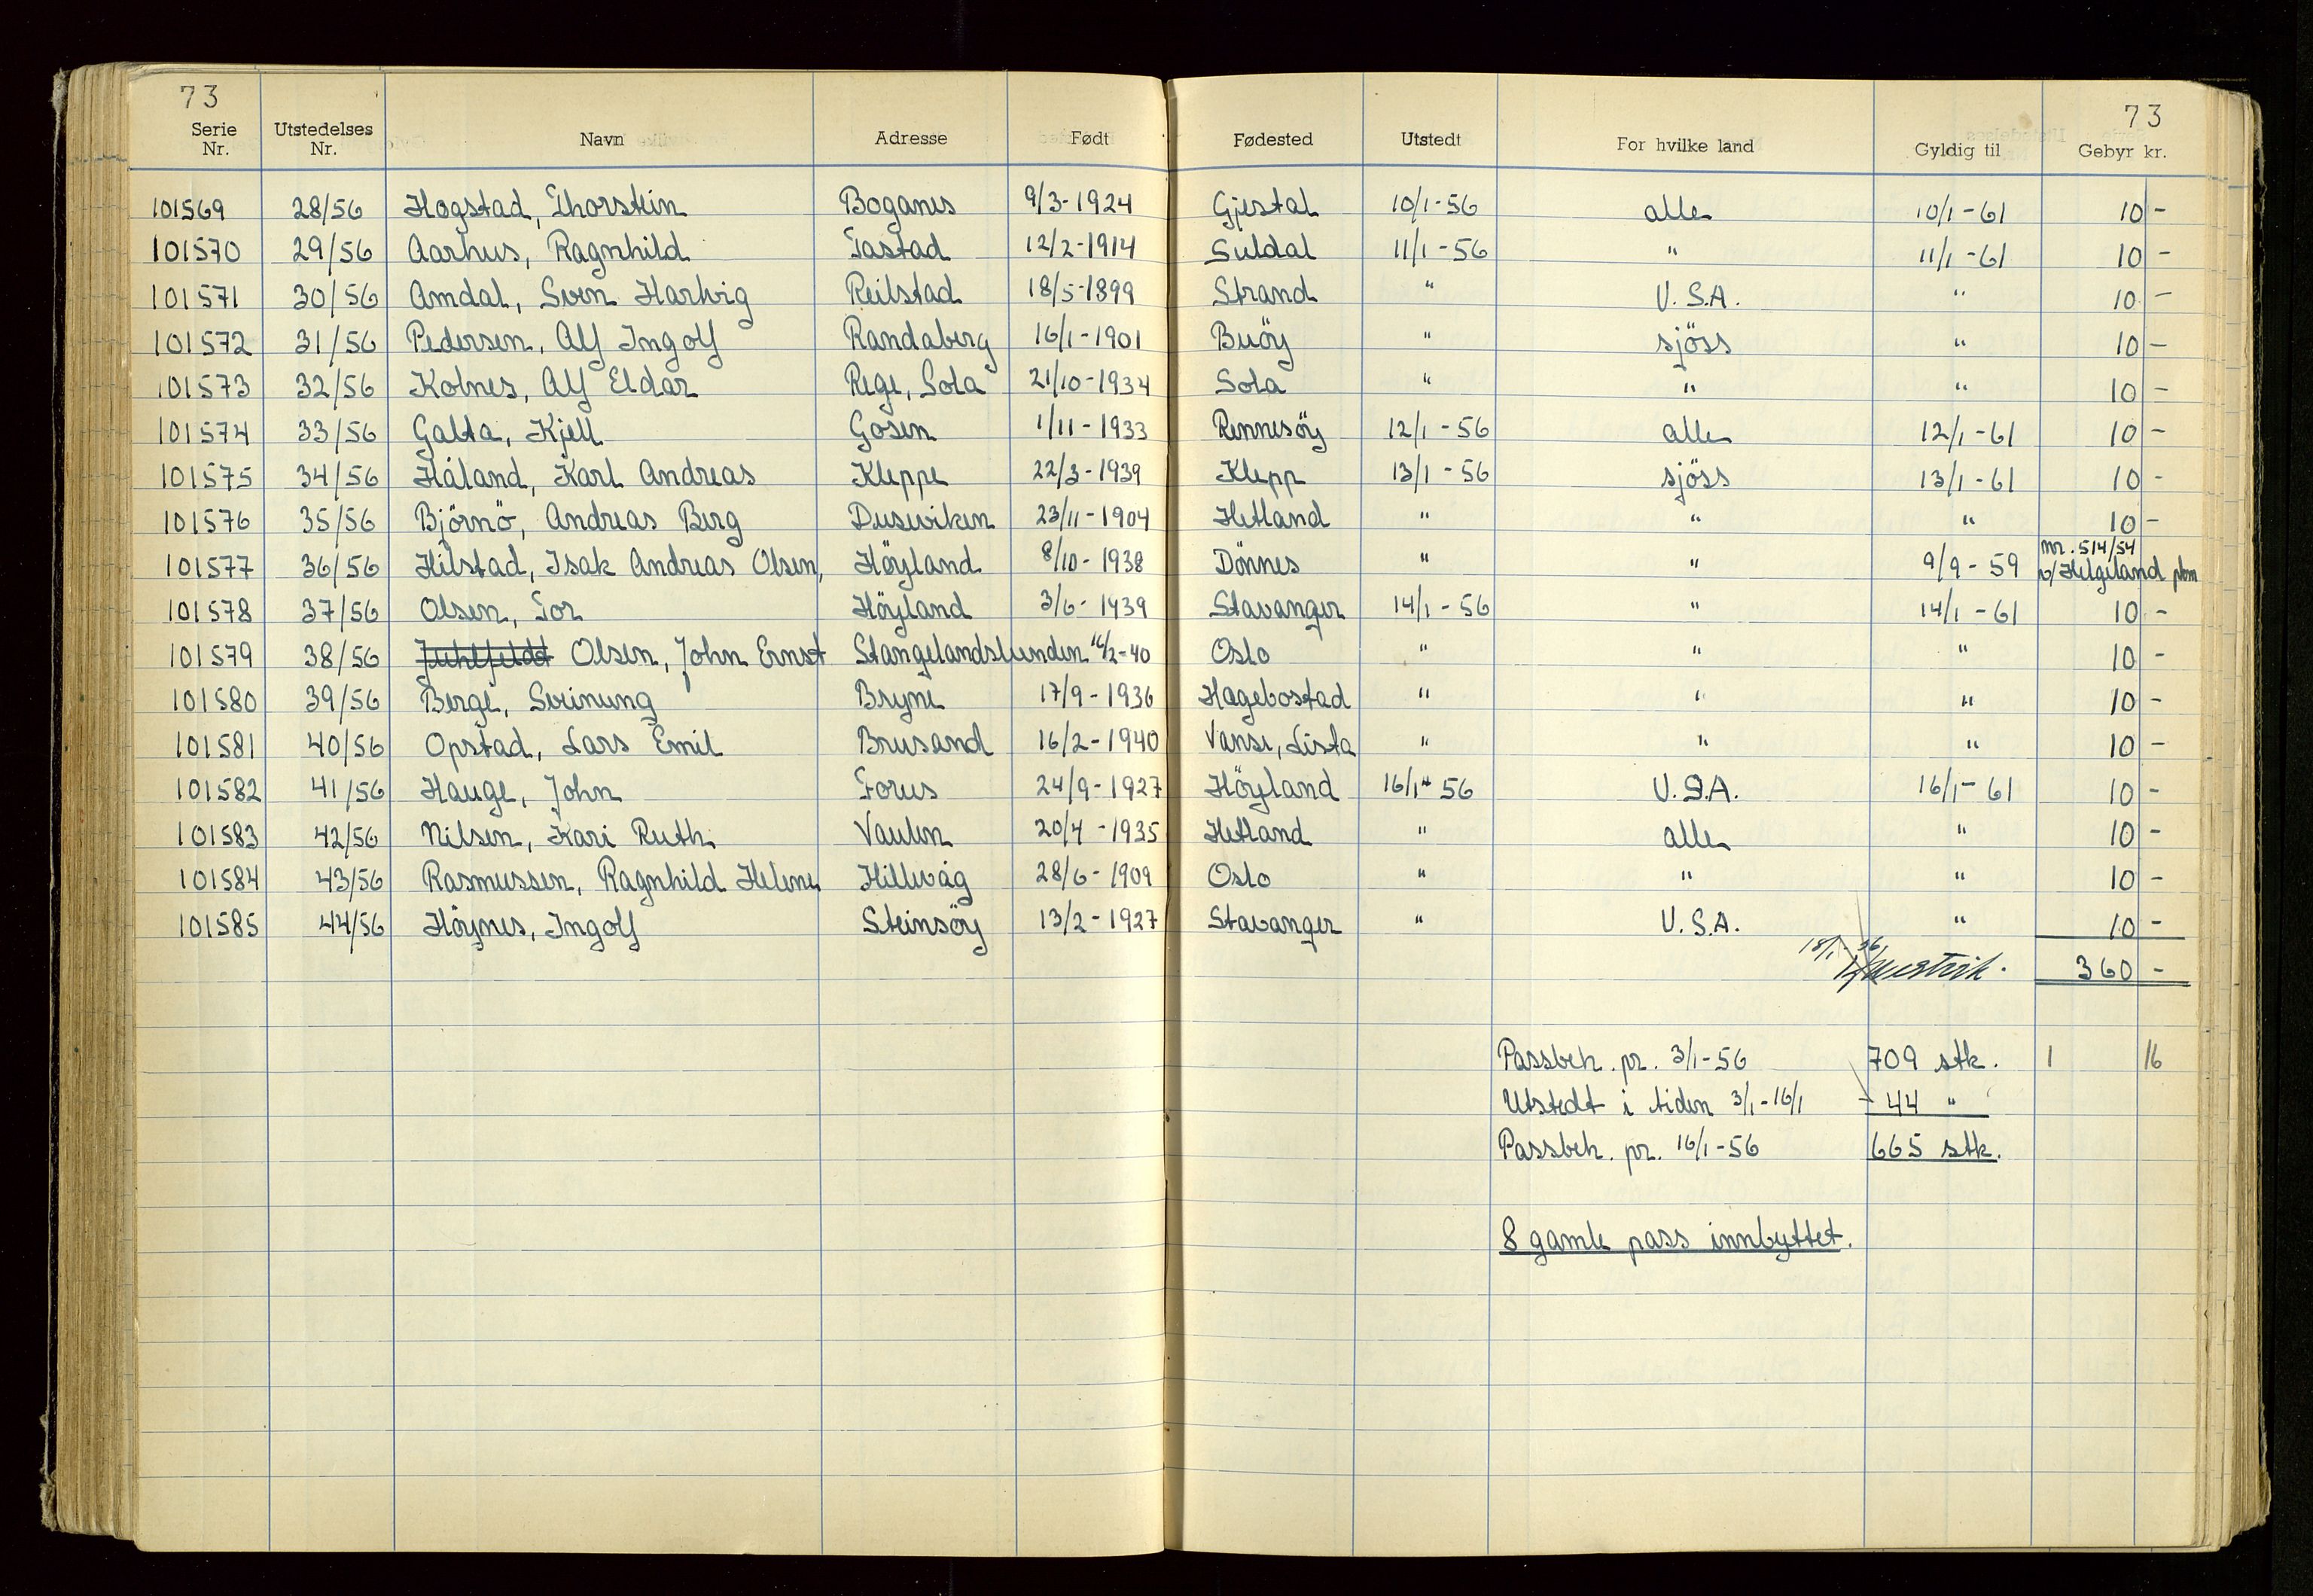 73 73
Serie Nr. Utstedelses Nr. Navn Adresse Født Fødested Utstedt For hvilke land Gyldig til Gebyr kr.
101569 28/56 Hogstad, Thorstein Boganes 9/3-1924 Gjestal 10/1-56 alle 10/1-61 10 -
101570 29/56 Aarhus, Ragnhild Tastad 12/2-1914 Suldal 11/1-56 " 11/1-61 10 -
101571 30/56 Amdal, Sven Hartvig Reilstad 18/5-1899 Strand " U.S.A. " 10 -
101572 31/56 Pedersen, Alf Ingolf Randaberg 16/1-1901 Buöy " sjöss " 10 -
101573 32/56 Kolnes, Alf Eldar Rege, Sola 21/10-1934 Sola " " " 10 -
101574 33/56 Galta, Kjell Gosen 1/11-1933 Rennesöy 12/1-56 alle 12/1-61 10 -
101575 34/56 Håland, Karl Andreas Kleppe 22/3-1939 Klepp 13/1-56 sjöss 13/1-61 10 -
101576 35/56 Björnö, Andreas Berg Duseviken 23/11-1904 Hetland " " " 10 -
101577 36/56 Hilstad, Isak Andreas Olsen, Höyland 8/10-1938 Dönnes " " 9/9-59 nr. 514/54 v/Helgeland pkm
101578 37/56 Olsen, Tor Höyland 3/6-1939 Stavanger 14/1-56 " 14/1-61 10 -
101579 38/56 Olsen, John Ernst Stangelandslunden 16/2-40 Oslo " " " 10 -
101580 39/56 Berge, Sveinung Bryne 17/9-1936 Hagebostad " " " 10 -
101581 40/56 Opstad, Lars Emil Brusand 16/2-1940 Vanse, Lista " " " 10 -
101582 41/56 Hauge, John Forus 24/9-1927 Höyland 16/1-56 U.S.A. 16/1-61 10 -
101583 42/56 Nilsen, Kari Ruth Vaulen 20/4-1935 Hetland " alle " 10 -
101584 43/56 Rasmussen, Ragnhild Helene Hillevåg 28/6-1909 Oslo " " " 10 -
101585 44/56 Höynes, Ingolf Steinsöy 13/2-1927 Stavanger " U.S.A. " 10 -
18/1-56 360 -
Passbeh. pr. 3/1-56 709 stk. 1 16
Utstedt i tiden 3/1-16/1 - 44 "
Passbeh. pr. 16/1-56 665 stk.
8 gamle pass innbyttet.